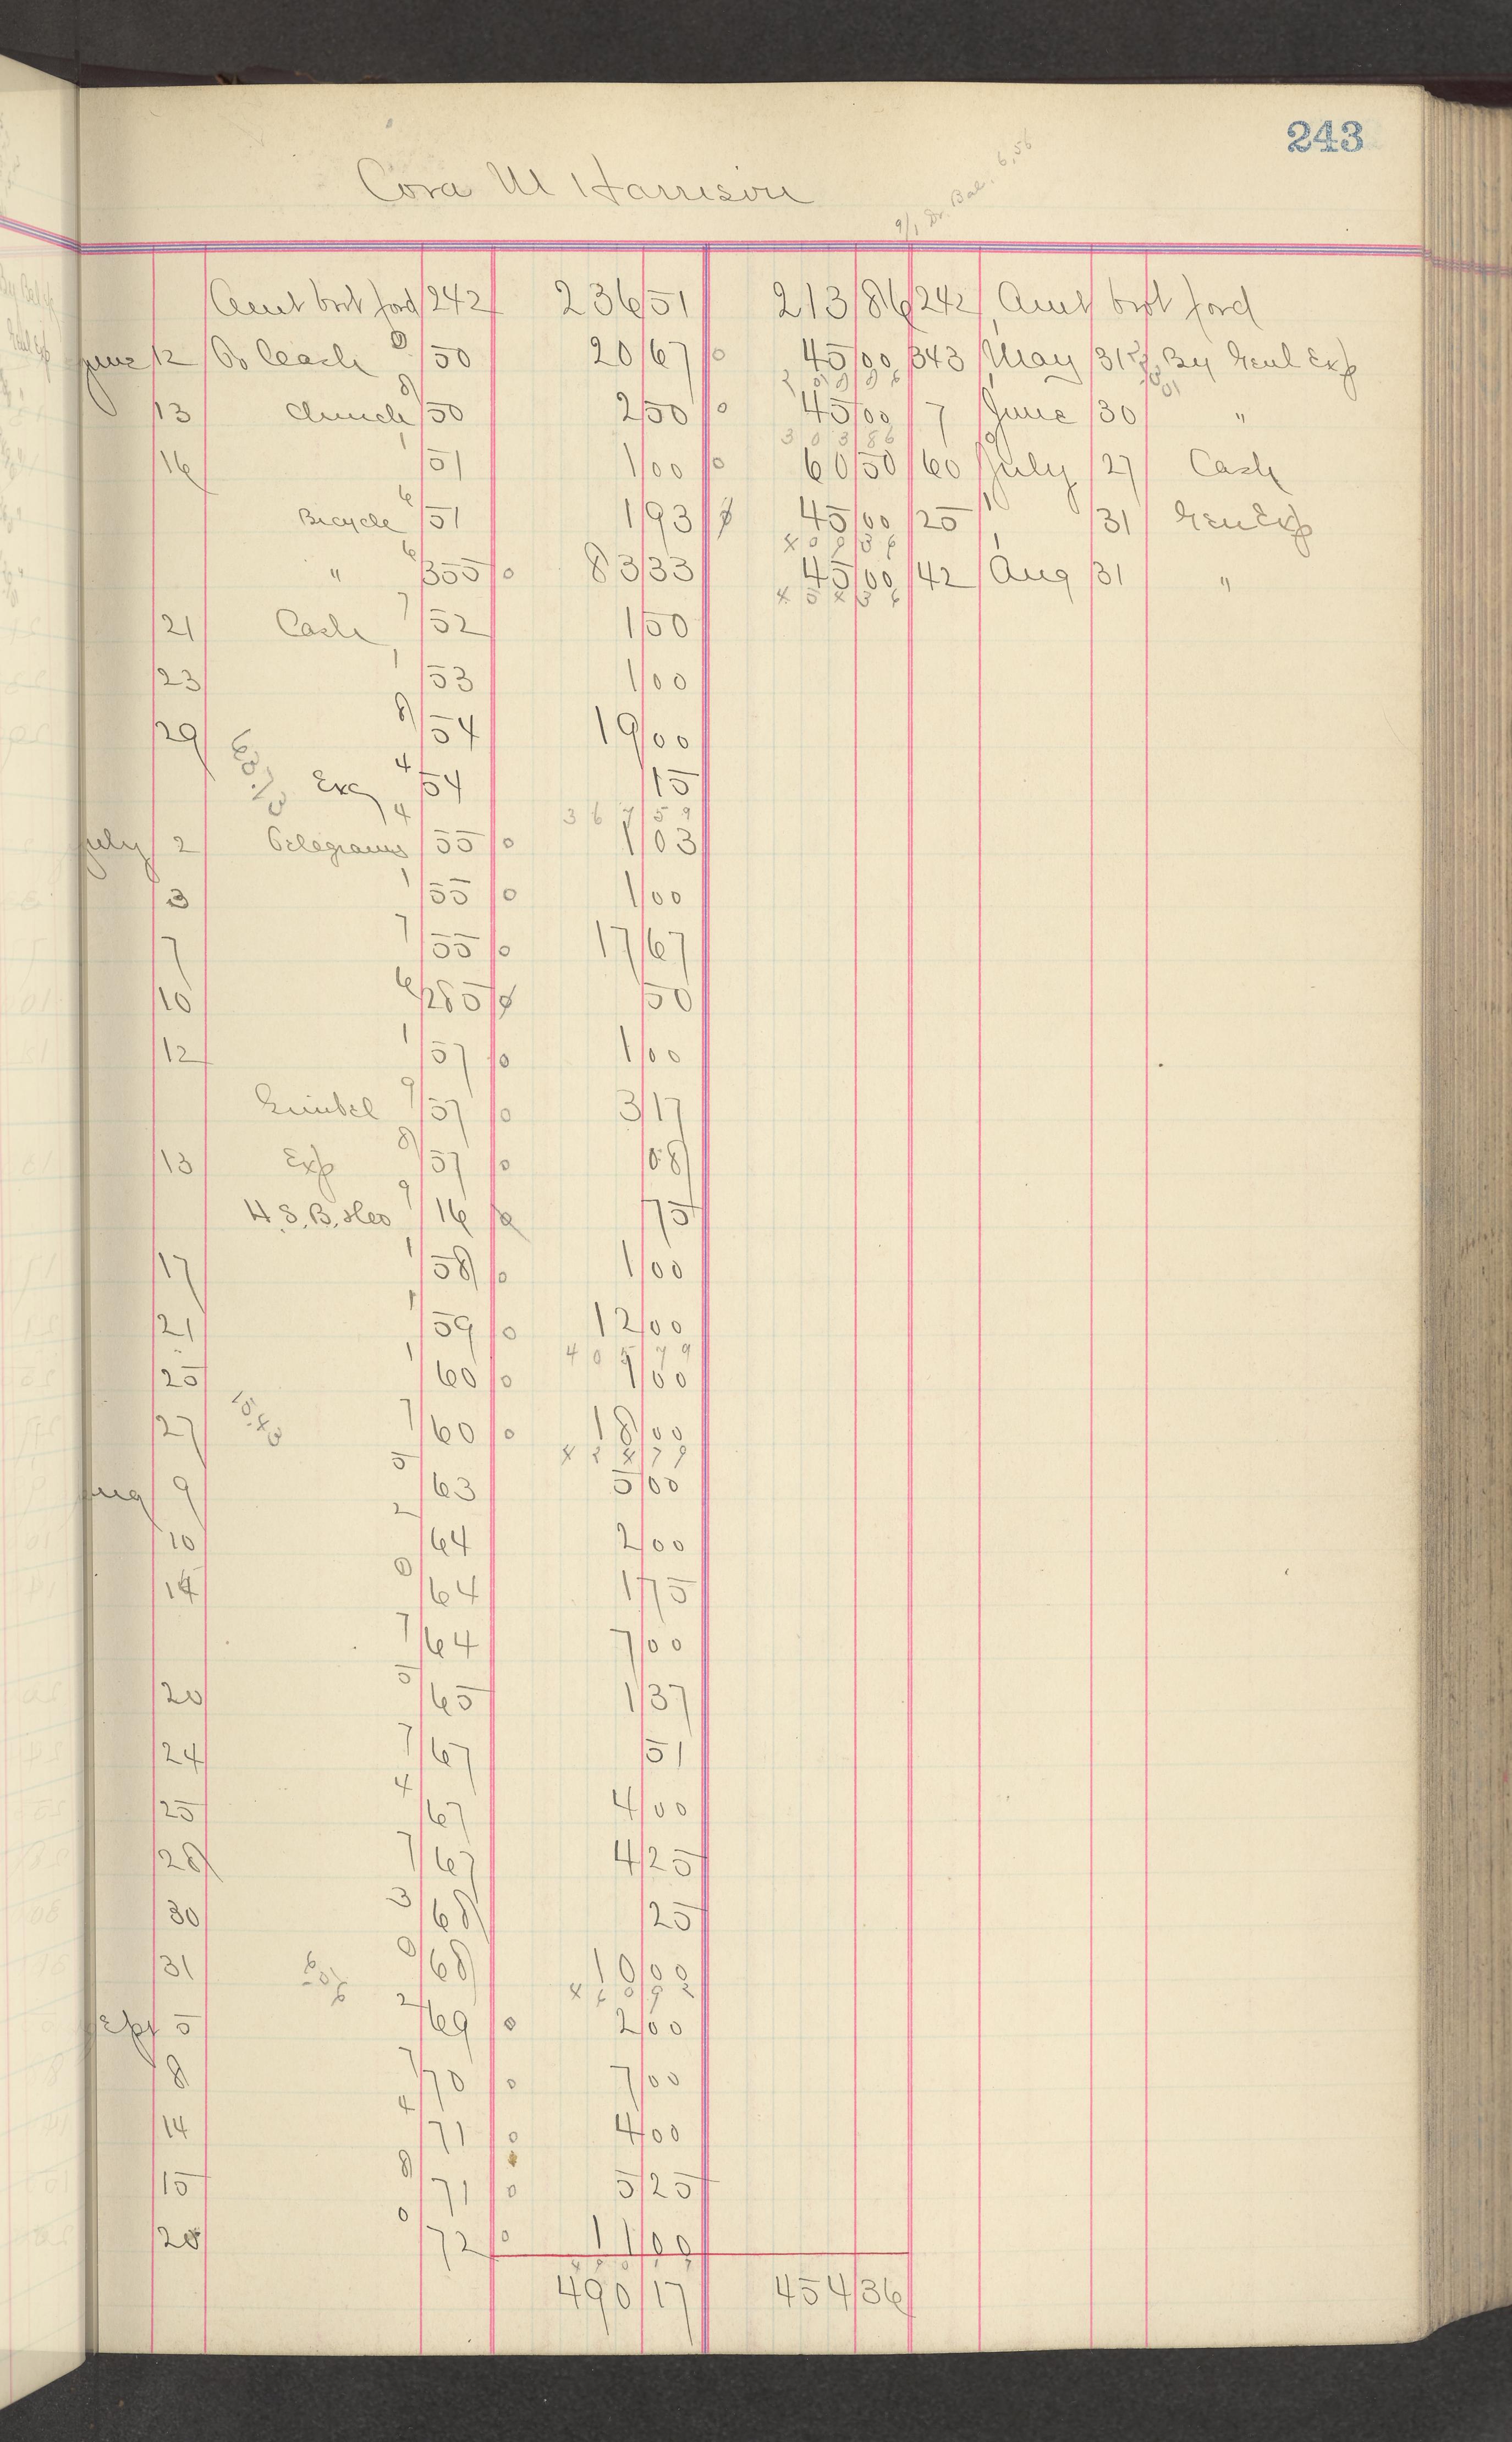 243
Cora M Harrison
9/1 Dr. Bal. 6.56
Amt brot ford 242 236 51 213 86 242 Amt brot ford
June 12 To Cash 0 50 20 67 0 45 00 343 May 31 By Genl Exp
13 Church 8 50 2 50 0 45 00 7 June 30 "
3 0 3 86
16 1 51 1 00 0 60 50 60 July 27 Cash
Bicycle 6 51 1 93 0 45 00 25 31 Gen Exp
4 0 9 36
" 6 355 0 83 33 45 00 42 Aug 31 "
4 5 4 3 6
21 Cash 7 52 1 50
23 1 53 1 00
29 8 54 19 00
Exc 4 54 15
3 6 7 5 9
July 2 Telegrams 4 55 0 1 03
3 1 55 0 1 00
7 7 55 0 17 67
10 6 285 0 50
12 1 57 0 1 00
Gimbel 9 57 0 3 17
13 Exp 8 57 0 08
H. S. B. & Co 9 16 0 75
17 1 58 0 1 00
21 1 59 0 12 00
4 0 5 7 9
25 1 60 0 1 00
27 7 60 0 18 00
4 2 4 7 9
Aug 9 5 63 5 00
10 2 64 2 00
14 0 64 1 75
7 64 7 00
20 5 65 1 37
24 7 67 51
25 4 67 4 00
28 7 67 4 25
30 3 68 25
31 0 68 10 00
4 6 0 9 2
Sept 5 2 69 0 2 00
8 7 70 0 7 00
14 4 71 0 4 00
15 8 71 0 5 25
20 0 72 0 11 00
490 17 454 36